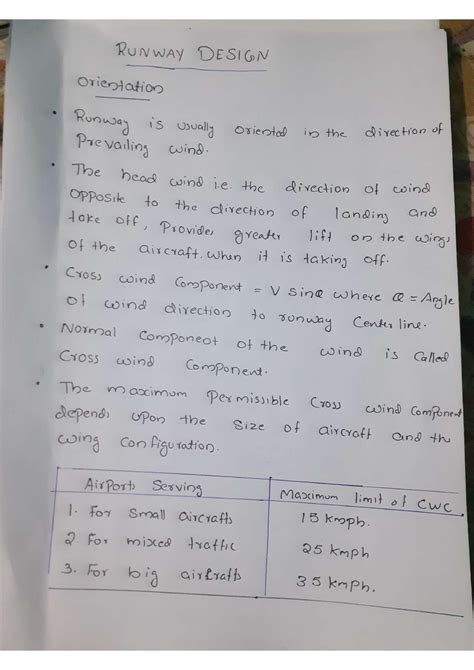 RUNWAY DESIGN
Orientation
• Runway is usually oriented in the direction of
Prevailing wind.
• The head wind i.e. the direction of wind
opposite to the direction of landing and
take off, Provides greater lift on the wings
of the aircraft. When it is taking off.
• Cross wind Component = V sinα where α = Angle
of wind direction to runway Center line.
• Normal Component of the wind is called
Cross wind Component.
• The maximum Permissible Cross wind Component
depends upon the size of aircraft and the
wing Configuration.
Airports Serving Maximum limit of CWC
1. For Small aircrafts 15 kmph.
2. For mixed traffic 25 kmph
3. For big aircrafts 35 kmph.